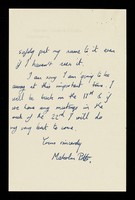 safely put my name to it even
if I haven't seen it.
I am sorry I am going to be
away at this important time. I
will be back on the 18th & if
we have any meetings in the
week of the 22nd I will do
my very best to come.
Yours sincerely
Malcolm